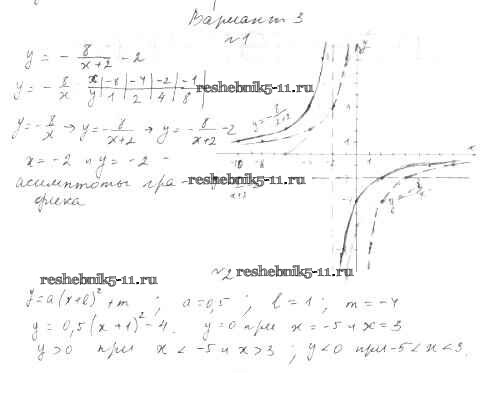 Вариант 3
№1
y = - 8/(x+2) - 2
y = - 8/x  x | -8 | -4 | -2 | -1
y | 1 | 2 | 4 | 8 |
reshebnik5-11.ru
y = - 8/x → y = - 8/(x+2) → y = - 8/(x+2) - 2
x = -2 и y = -2 -
асимптоты гра-
reshebnik5-11.ru
фика
y = - 8/(x+2)
-10 -8 1 x
y
№2
reshebnik5-11.ru
reshebnik5-11.ru
y = a(x+l)² + m ; a = 0,5 ; l = 1 ; m = -4
y = 0,5(x+1)² - 4. y = 0 при x = -5 и x = 3
y > 0 при x < -5 и x > 3 ; y < 0 при -5 < x < 3.